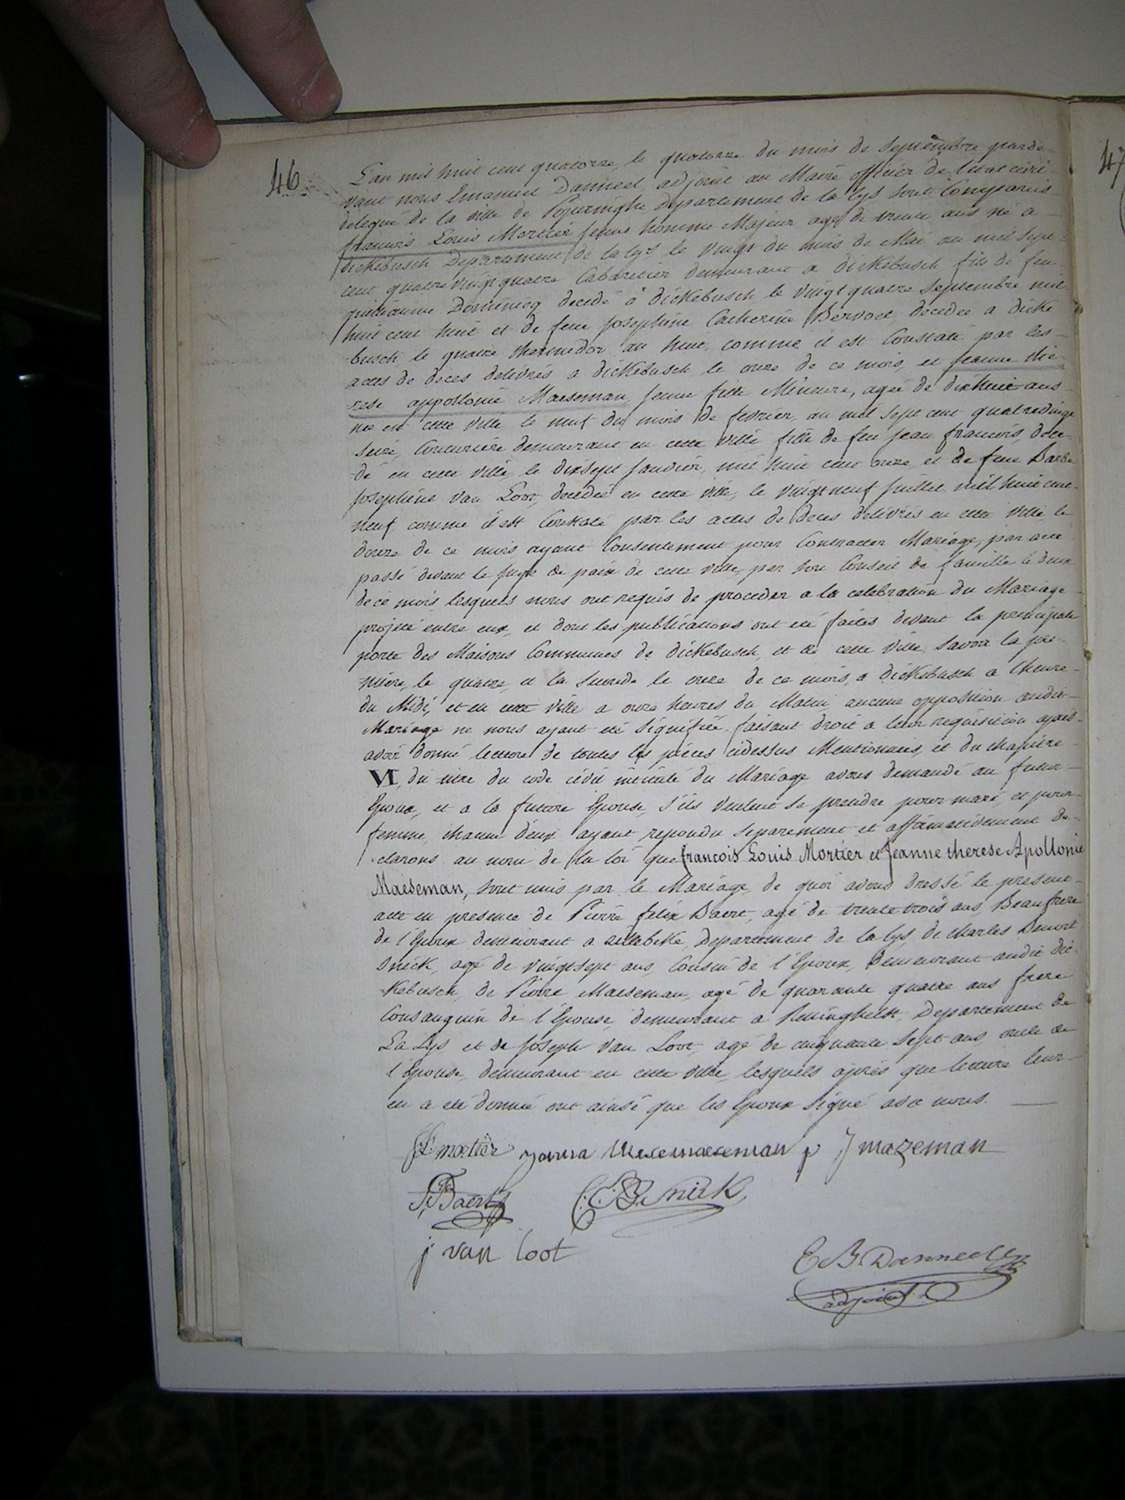 46.
L'an mil huit cent quatorze, le quatorze du mois de Septembre parde-
vant nous Emanuel Danneel, adjoint au Maire officier de l'etat civil
delegué de la ville de Poperinghe Departement de la Lys sont Comparus
francois Louis Mortier jeune homme Majeur agé de trente ans né a
dickebusch Departement de la Lys le vingt du mois de Mai an mil sept
cent quatre vingt quatre Cabaretier demeurant a dickebusch fils de feu
Dominicq decedé a dickebusch le vingt quatre Septembre mil
huit cent huit et de feue Josephine Catherine Bervoet decedée a dicke
busch le quatre thermidor an huit, comme il est Constaté par les
actes de deces delivrés a dickebusch le onze de ce mois, et jeanne the-
rese appollonie Maeseman jeune fille Mineure, agée de dixhuit ans
née en cette ville le neuf du mois de fevrier, an mil sept cent quatrevingt
seize, Couturière demeurant en cette ville fille de feu jean francois, dece-
dé en cette ville, le dixsept janvier, mil huit cent onze, et de feue Barbe
josephine van Loot, decedée en cette ville, le vingt neuf juillet mil huit cent
neuf comme il est Constaté par les actes de deces delivrés en cette ville le
douze de ce mois ayant Consentement pour Contracter Mariage, par acte
passé devant le juge de paix de cette ville, par son Conseil de famille le deux
de ce mois lesquels nous ont requis de proceder a la celebration du Mariage
projeté entre eux, et dont les publications ont été faites devant la principale
porte des Maisons Communes de dickebusch, et de cette ville, Savoir la pre-
mière, le quatre, et la seconde le onze de ce mois, a dickebusch a l'heure
du Midi, et en cette ville a onze heures du Matin, aucune opposition audit
Mariage ne nous ayant été Signifiée, faisant droit a leur requisition, après
avoir donné lecture de toutes les pièces cidessus Mentionnées, et du chapitre
VI, du titre du code civil intitulé du Mariage avons demandé au futur
Epoux, et a la future Epouse, s'ils veulent se prendre pour mari, et pour
femme, chacun d'eux ayant repondu separement et affirmativement de-
clarons au nom de la loi que francois Louis Mortier et Jeanne therese Apollonie
Maeseman, sont unis par le Mariage, de quoi avons dressé le present
acte en presence de Pierre felix Baert, agé de trente trois ans, Beaufrere
de l'Epoux demeurant a Departement de la Lys, de Charles
Snick, agé de vingt sept ans, Cousin de l'Epoux, demeurant audit dic-
kebusch, de Pierre Maeseman, agé de quarante quatre ans frere
Consanguin de l'Epouse, demeurant a Reninghelst, Departement de
La Lys et de joseph van Loot, agé de cinquante sept ans oncle de
l'Epouse, demeurant en cette ville, lesquels après que lecture leur
en a été donnée ont ainsi que les Epoux Signé avec nous.
mortier Janna maeseman p J mazeman
Baert Snick
j van loot
E B. Danneel
adjoint
47